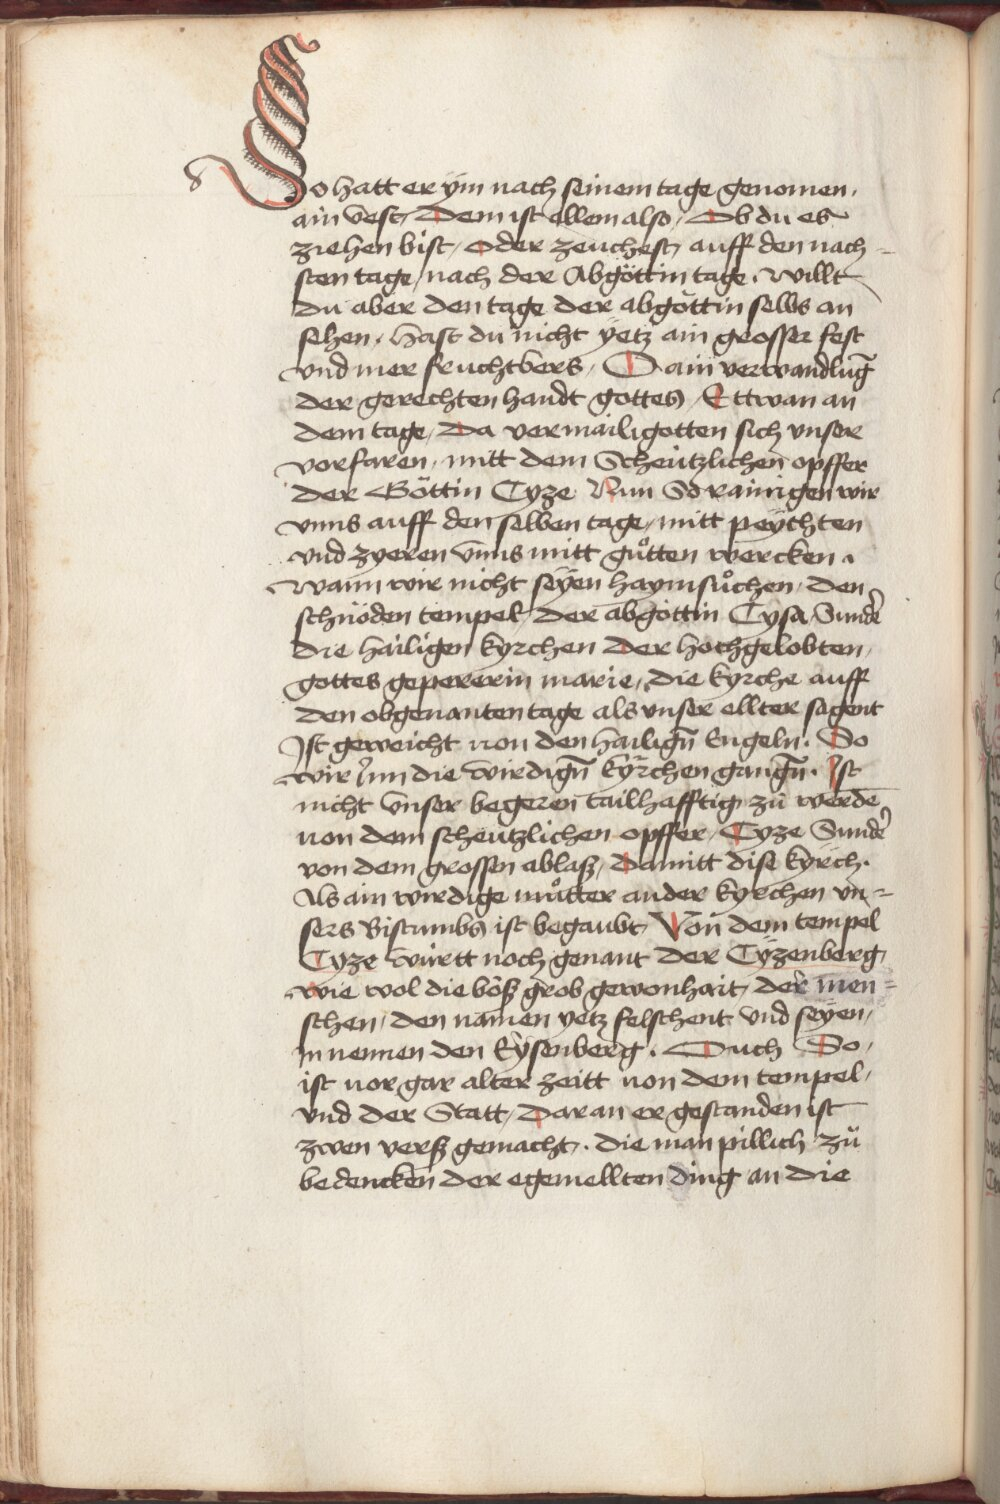 So hatt er ym nach seinem tage genomen.
ain vest, Dem ist ellem also, Ob du es
ziehen bist, oder zeuchest, auff den nach=
sten tage, nach der Abgöttin tage. willt
du aber den tage der abgöttin selbs an
sehen, hast du nicht yetz ain grosser fest
vnd mer fruchtbers, O ain verwandlūg
der gerechten handt gottes, Ettwan an
dem tage, Da vermailigotten sich vnser
vorfaren, mitt dem Scheützlichen opffer
der Göttin Cyze Nun So rainigen wir
vnns auff den selben tage, mitt peychten
vnd zyeren vnns mitt gůtten wercken.
wann wir nicht seyen haymsůchen, den
schnöden tempel, der abgöttin Cysa, Sunder̄
die hailigen kyrchen der hochgelobten,
gottes gepererin marie, die kyrche auff
den obgenanten tage als vnser ellter sagent
Ist geweicht von den hailigñ Engeln. So
wir Inn die wirdigñ kyrchen gangñ. Ist
nicht vnser begeren tailhafftig zů werdē
von dem scheützlichen opffer, Cyze Sunder̄
von dem grossen ablaß, Damitt dise kyrch.
Als ain wirdige můtter ander kyrchen vn=
sers Bistumbs ist begaubt, Von dem tempel
Cyze württ noch genant der Cyzenberg,
wie wol die böß grob gewonhait, der men=
schen, den namen yetz felschent vnd seyen,
in nennen den Eysenberg. Duch So,
ist vor gar alter zeitt von dem tempel,
vnd der Statt, Daran er gestanden ist
zwen verß gemacht. die man pillich zů
bedencken der egemellten ding an die